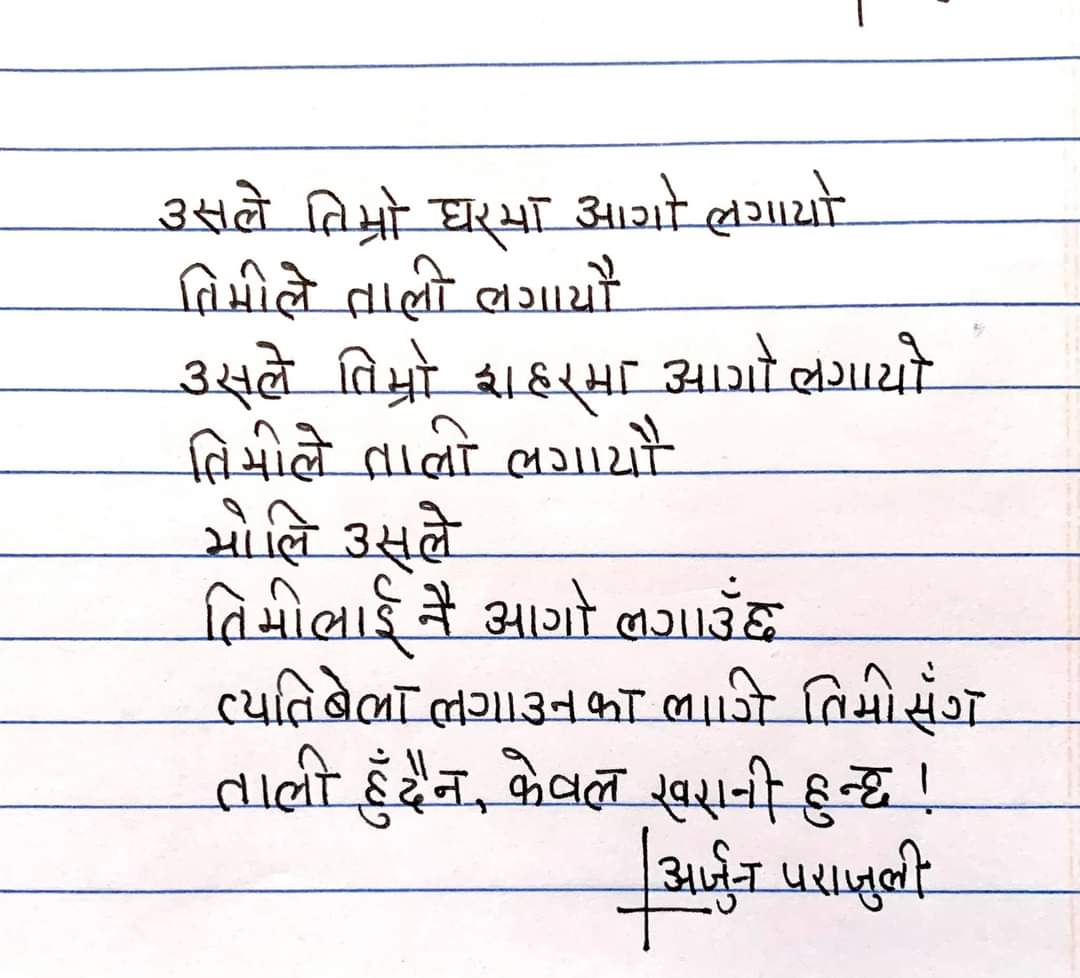 उसले तिम्रो घरमा आगो लगायो
तिमीले ताली लगायौ
उसले तिम्रो शहरमा आगो लगायो
तिमीले ताली लगायौ
भोलि उसले
तिमीलाई नै आगो लगाउँछ
त्यतिबेला लगाउनका लागि तिमीसँग
ताली हुँदैन, केवल खरानी हुन्छ !
अर्जुन पराजुली